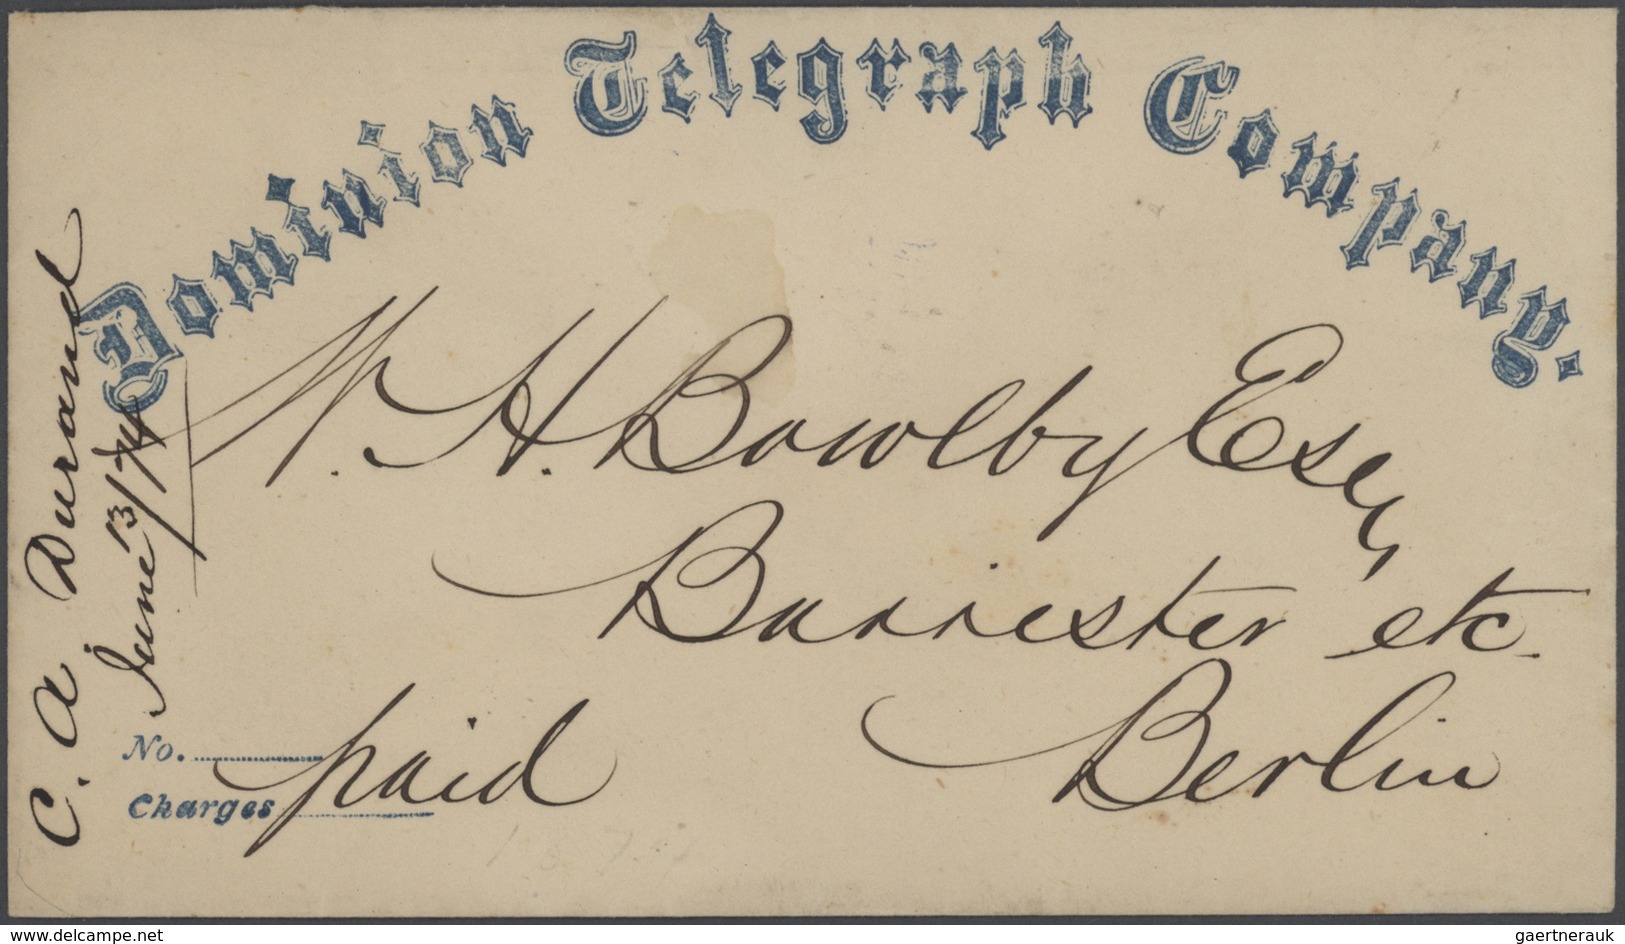 Dominion Telegraph Company.
C. A Durand
June 13/74
W. H. Bowlby Esq
Barrister etc
Berlin
No.
Charges paid
www.delcampe.net
gaertnerauk